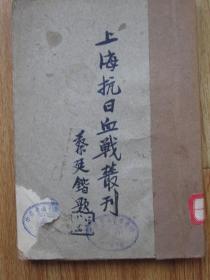 上海抗日血战叢刊
蔡廷鍇題